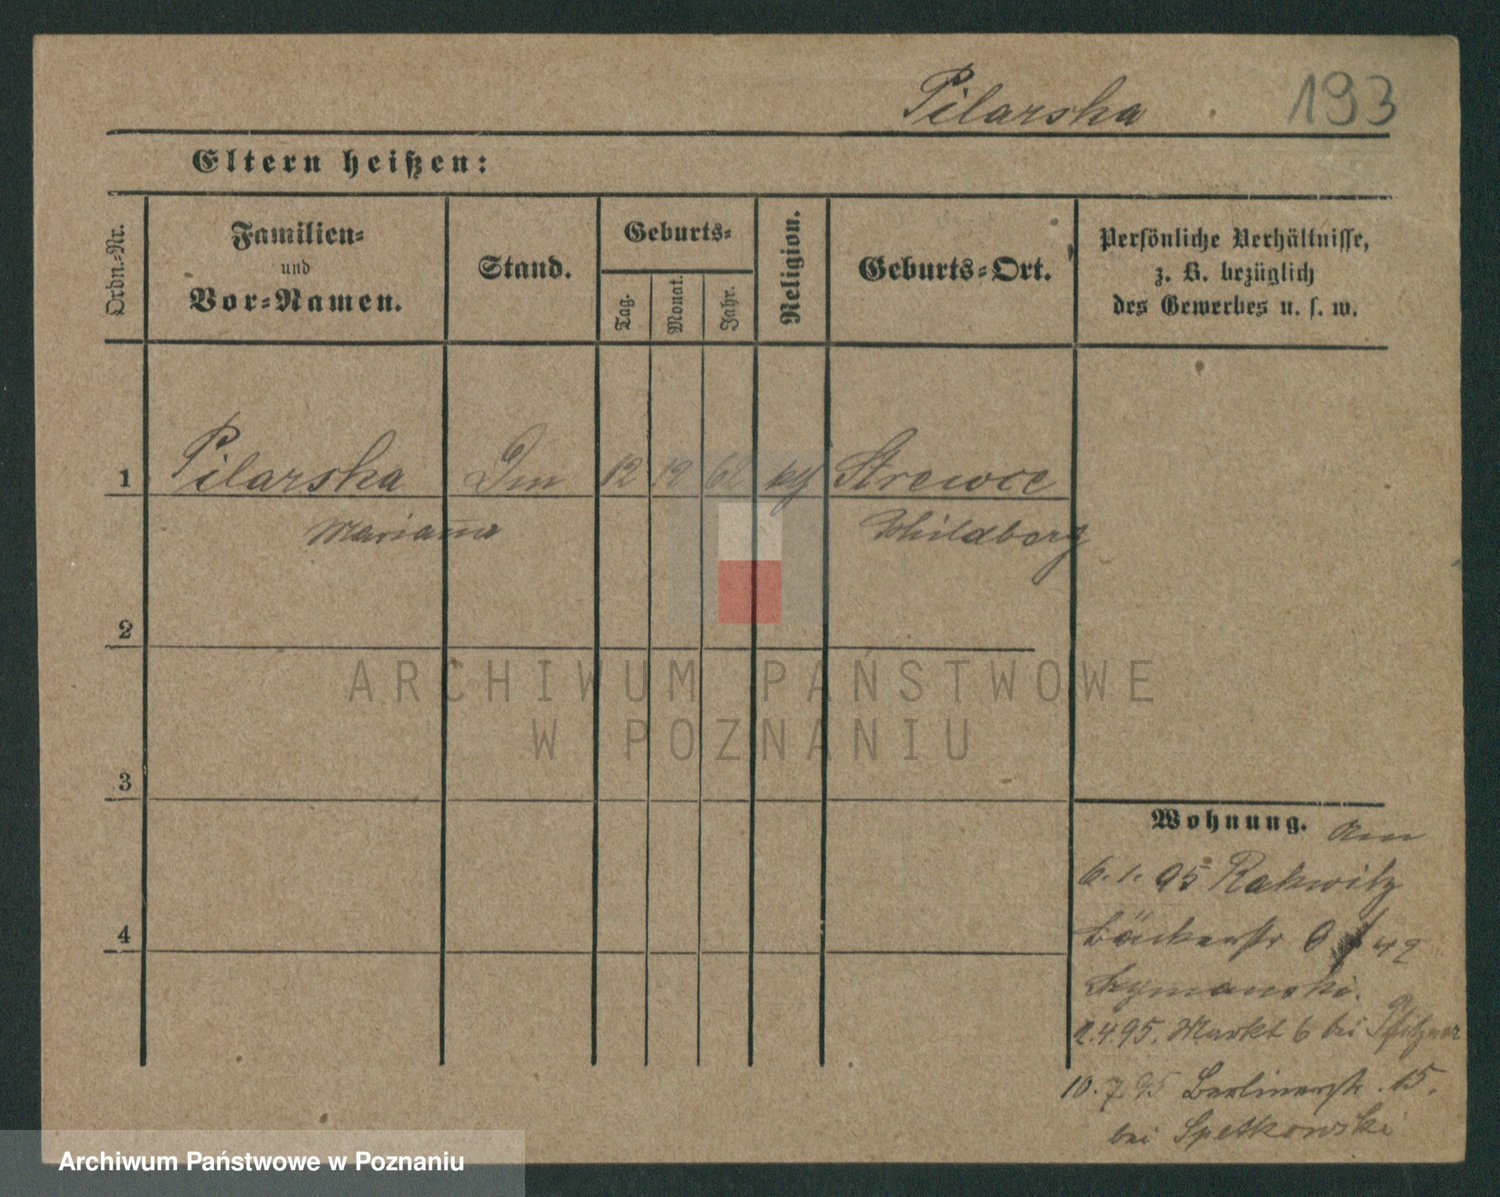 Pilarska 193
Eltern heißen:
Ordn.-Nr.
Familien-
und
Vor-Namen.
Stand.
Geburts-
Tag.
Monat.
Jahr.
Religion.
Geburts-Ort.
Persönliche Verhältnisse,
z. B. bezüglich
des Gewerbes u. s. w.
1 Pilarska 12 12 62 Strewce
Marianna Schildberg
2
ARCHIWUM PAŃSTWOWE
W POZNANIU
3
Wohnung. Am
6.1.95 Rakwitz
4
Bäckerstr 42
Szymanski.
2.4.95. Markt 6 bei Pfitzner
10.7.95 Berlinerstr. 15.
bei Spetkowski
Archiwum Państwowe w Poznaniu